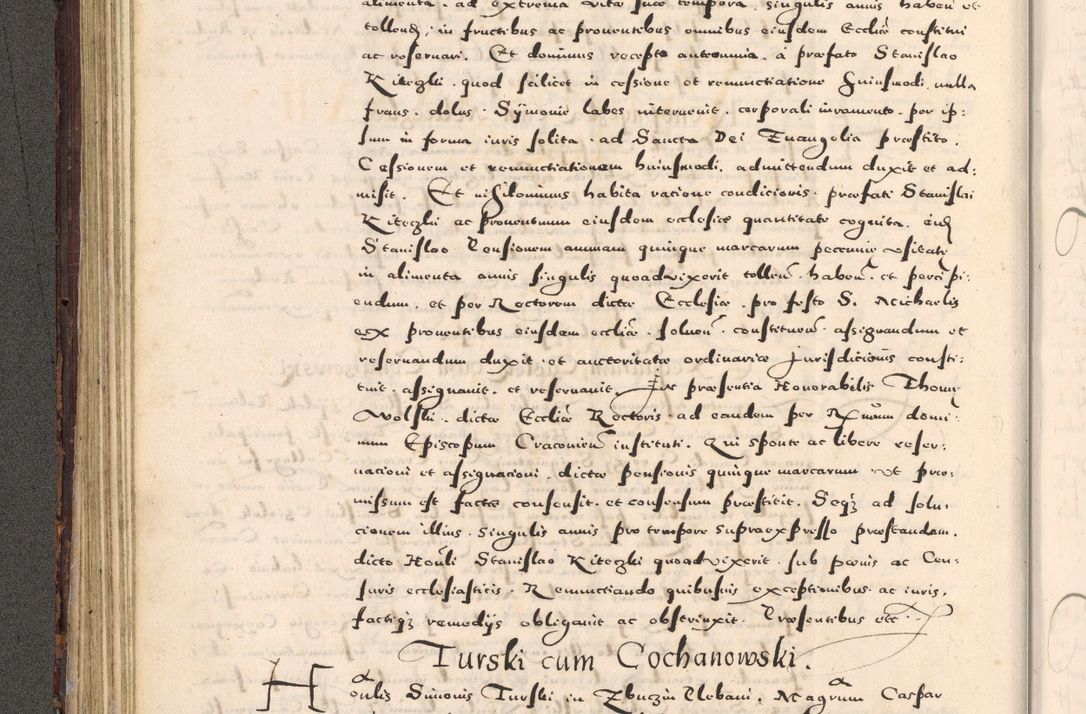 alimenta . ad extrema vitæ suæ tempora, singulis annis haben̄ et
tollend̨ . in fructibus ac prouentibus omnibus eiusdem Eccliæ constitui
ac reseruari. Et dominus recepto autonomia, à præfato Stanislao
Kitezki . quod scilicet in cessione et renunctiatione huiusmodi, nulla
fraus . dolus . Symonie labes interuenit . corporali iuramento . per ip:
sum in forma iuris solita . ad Sancta Dei Euangelia præstito .
Cessionem et renunctiationem huiusmodi, admittendum duxit et ad:
misit . Et nihilominus habita ratione condicionis . præfati Stanislai
Kitezki ac prouentuum eiusdem ecclesiæ quantitate cognita, eid̨
Stanislao Pensionem annuam quinque marcarum peccuniæ vsitatę
in alimenta annis singulis quoad vixerit tollen̄ . haben̄ . et percipi:
endum, et per Rectorem dictæ Ecclesiæ . pro festo S. Michaelis
ex prouentibus eiusdem eccliæ . soluen̄ . constituen̄ . assignandum et
reseruandum duxit . et auctoritate ordinariæ Jurisdicionis consti:
tuit . assignauit . et reseruauit . In præsentia Honorabilis Thomę
Wolski . dictæ Eccliæ Rectoris . ad eandem per Rx̄mum domi:
num Episcopum Cracouien̄ instituti . Qui sponte ac libere reser:
uacioni et assignacioni . dictæ pensionis quinque marcarum . vt præ:
missum est factæ consensit . et consensum præstitit . Seqz ad solu:
cionem illius . singulis annis pro tempore supraexpresso præstandam,
dicto Hoñli Stanislao Kitezki quoad vixerit . sub pœnis ac Cen:
suris ecclesiasticis . Renunciando quibusuis exceptionibus . ac iuris,
factiqz remedijs obligauit ac obstrinxit . Præsentibus etc .
Turski cum Cochanowski .
Honlis Simonis Turski in Zbuczin Plebani, Magrum Caspar